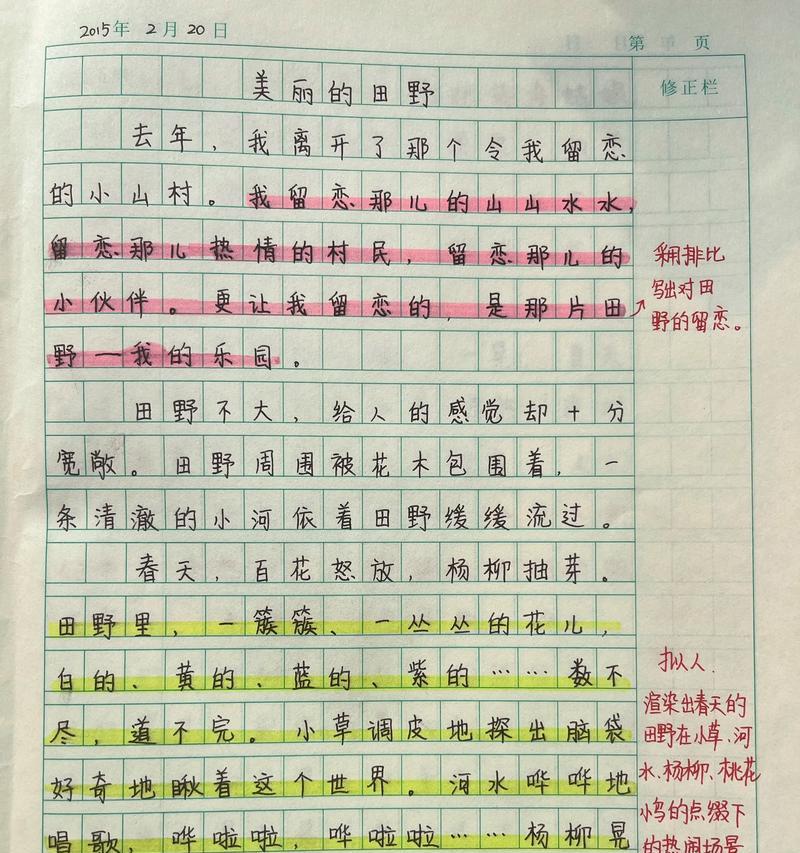 2015年 2月 20日
第 页
美丽的田野
修正栏
去年，我离开了那个令我留恋
的小山村。我留恋那儿的山山水水，
留恋那儿热情的村民，留恋那儿的
小伙伴。更让我留恋的，是那片田
野—我的乐园。
采用排比
写出对田
野的留恋。
田野不大，给人的感觉却十分
宽敞。田野周围被花木包围着，一
条清澈的小河依着田野缓缓流过。
春天，百花怒放，杨柳抽芽。
田野里，一簇簇、一丛丛的花儿，
白的、黄的、蓝的、紫的……数不
尽，道不完。小草调皮地探出脑袋
好奇地瞅着这个世界。河水哗哗地
唱歌，哗啦啦，哗啦啦……杨柳晃
拟人.
渲染出春天的
田野在小草、河
水、杨柳、桃花
小鸟的点缀下
的热闹场景